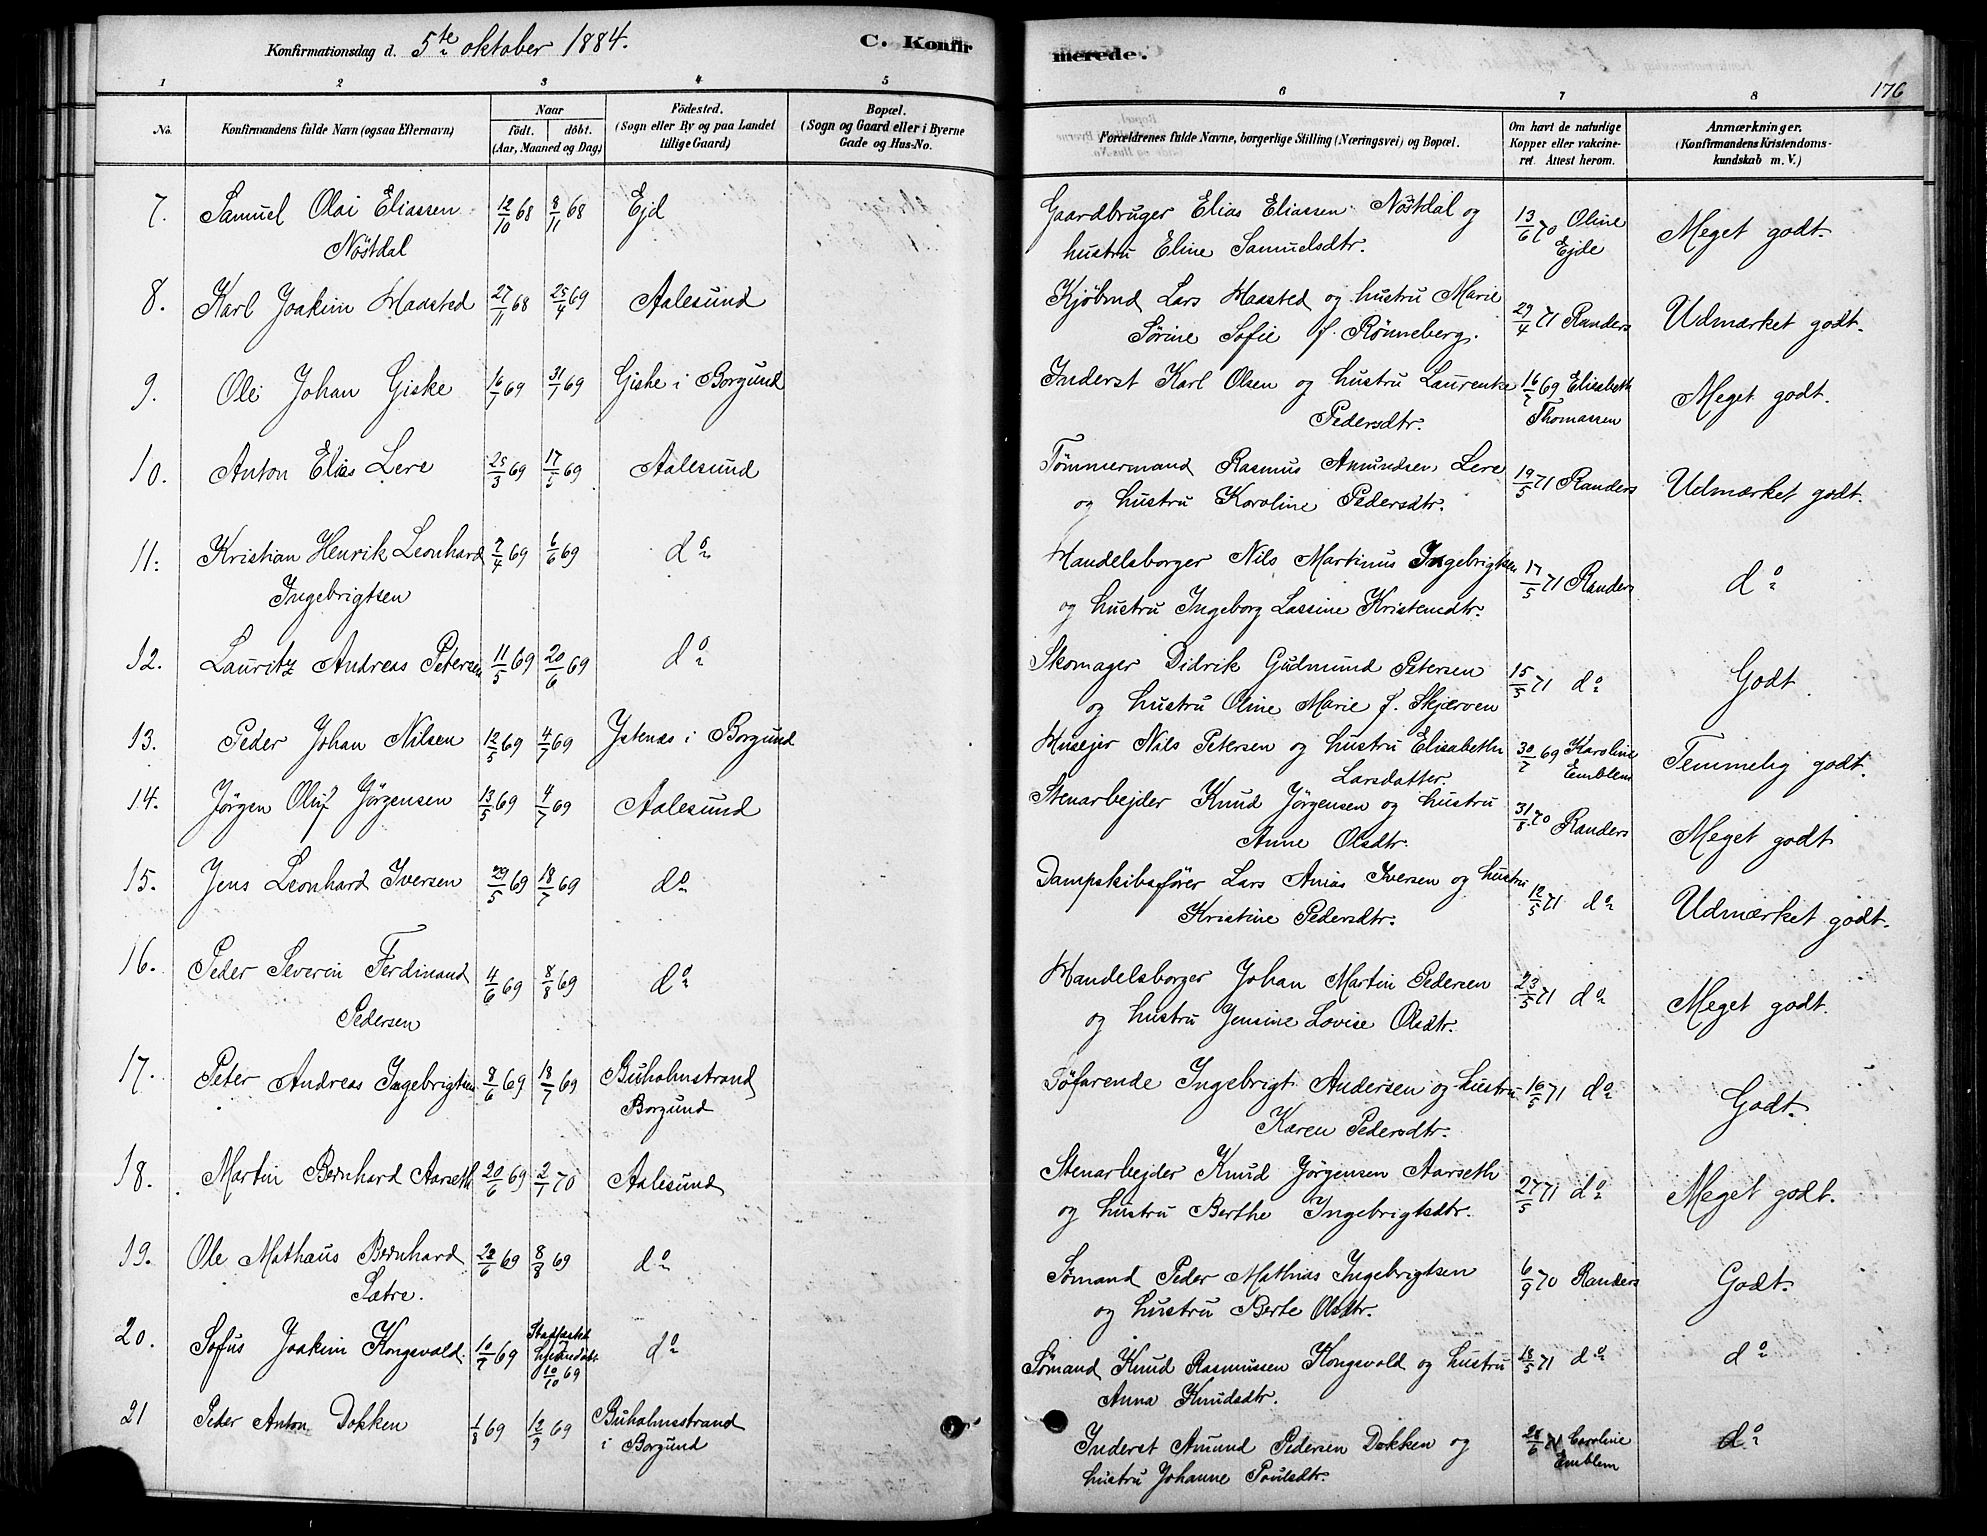 Konfirmationsdag d. 5te oktober 1884.
C. Konfirmerede.
176
1 2 3 4 5 6 7 8
No.
Konfirmandens fulde Navn (ogsaa Efternavn)
Naar
födt. döbt.
(Aar, Maaned og Dag)
Födested.
(Sogn eller By og paa Landet
tillige Gaard)
Bopæl.
(Sogn og Gaard eller i Byerne
Gade og Hus-No.
Forældrenes fulde Navne, borgerlige Stilling (Næringsvei) og Bopæl.
Om havt de naturlige
Kopper eller vakcine-
ret. Attest herom.
Anmærkninger.
(Konfirmandens Kristendoms-
kundskab m. V.)
7. Samuel Olai Eliassen 12/10 68 8/11 68 Ejd Gaardbruger Elias Eliassen Nöstdal og 13/6 70 Oline Meget godt.
Nöstdal hustru Eline Samuelsdtr. Ejde
8. Karl Joakim Haasted 27/11 68 25/4 69 Aalesund Kjöbmd Lars Haasted og hustru Marie 29/4 71 Randers Udmærket godt.
Sörine Sofie f. Rönneberg.
9. Ole Johan Giske 16/7 69 31/7 69 Giske i Borgund Inderst Karl Olsen og hustru Laurentse 16/7 69 Elisabeth Meget godt.
Pedersdtr. Thomassen
10. Anton Elias Lere 25/3 69 17/5 69 Aalesund Tömmermand Rasmus Amundsen Lere 19/5 71 Randers Udmærket godt.
og hustru Karoline Pedersdtr.
11. Kristian Henrik Leonhard 2/4 69 6/6 69 do Handelsborger Nils Martinus Ingebrigtsen 17/5 71 Randers do
Ingebrigtsen og hustru Ingeborg Lassine Kristensdtr.
12. Lauritz Andreas Petersen 11/5 69 20/6 69 do Skomager Didrik Gudmund Petersen 15/5 71 do Godt
og hustru Oline Marie f. Skjærven
13. Peder Johan Nilsen 12/5 69 4/7 69 Ystenæs i Borgund Husejer Nils Petersen og hustru Elisabeth 30/7 69 Karoline Temmelig godt.
Larsdatter. Emblem
14. Jörgen Oluf Jörgensen 13/5 69 4/7 69 Aalesund Stenarbejder Knud Jörgensen og hustru 31/8 70 Randers Meget godt
Anne Olsdtr.
15. Jens Leonhard Iversen 29/5 69 18/7 69 do Dampskibsförer Lars Anias Iversen og hustru 12/5 71 do Udmærket godt.
Kristine Pedersdtr.
16. Peder Severin Ferdinand 4/6 69 8/8 69 do Handelsborger Johan Martin Pedersen 23/5 71 do Meget godt.
Pedersen og hustru Jensine Lovise Olsdtr.
17. Peter Andreas Ingebrigtsen 8/6 69 18/7 69 Buholmstrand Söfarende Ingebrigt Andersen og hustru 16/5 71 do Godt.
Borgund Karen Pedersdtr.
18. Martin Bernhard Aarseth 20/6 69 2/1 70 Aalesund Stenarbejder Knud Jörgensen Aarseth 27/5 71 do Meget godt.
og hustru Berthe Ingebrigtsdtr.
19. Ole Mathæus Bernhard 22/6 69 8/8 69 do Sömand Peder Mathias Ingebrigtsen 6/9 70 Randers Godt.
Sætre. og hustru Berte Olsdtr.
20. Sofus Joakim Kongsvold 10/7 69 Stadfæsted hjemmedøbt 10/10 69 do Sömand Knud Rasmussen Kongsvold og hustru 18/5 71 do do
Anna Knudsdtr.
21 Peder Anton Dokken 1/8 69 12/9 69 Buholmsstrand Inderst Amund Pedersen Dokken og 28/6 71 Caroline do
i Borgund hustru Johanne Poulsdtr. Emblem